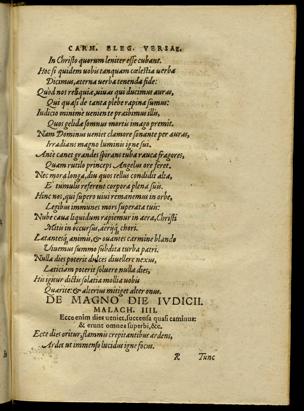 CARM. ELEG. VERSAE.
In Christo quorum leniter esse cubant.
Hoc si quidem vobis tanquam cœlestia verba
Dicimus, æterna verba tenenda fide:
Quòd nos relliquiæ, viuas qui ducimus auras,
Qui quasi de tanta plebe rapina sumus:
Indicio minime veniente præibimus illis,
Quos gelida somnus mortis imago premit.
Nam Dominus veniet clamore sonante per auras,
Irradians magno luminis igne sui.
Antè canet grandes spirans tuba rauca fragores,
Quam rutilo princeps Angelus ore feret.
Nec mora longa, diu quos tellus condidit alta,
E tumulis referent corpora plena suis.
Hinc nos, qui supero viui remanemus in orbe,
Legibus immunes mors superata tuis:
Nube caua liquidum rapiemur in aera, Christi
Motu in occursus, aerijq́ chori.
Lætantesq́ animis, & ouantes carmine blando
Viuemus summo subdita turba patri.
Nulla dies poterit dulces diuellere nexus,
Lætitiam poterit soluere nulla dies,
His igitur dictis solatia mollia vobis
Quærite: & alterius mitiget alter onus.
DE MAGNO DIE IVDICII.
MALACH. IIII.
Ecce enim dies veniet, succensa quasi caminus:
& erunt omnes superbi, &c.
Ecce dies oritur, flammis crepitantibus ardens,
Ardet ut immenso lucidus igne focus.
R Tunc